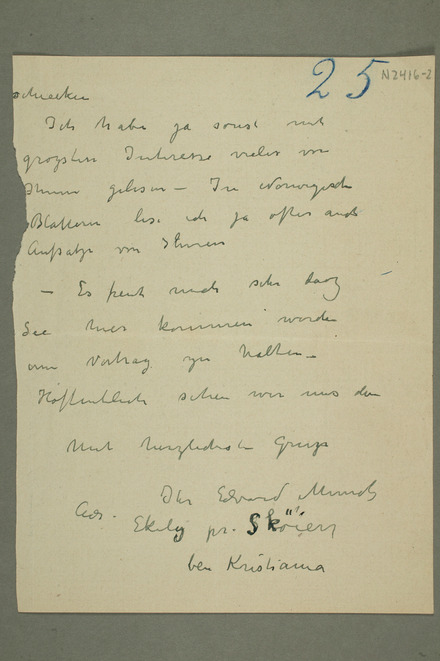 25
N2416-2
schrecken
Ich habe ja sonst mit
grozsten Interesse vieles von
Ihnen gelesen – In Norwegische
Blättern lese ich ja öfter auch
Aufsätze von Ihnen
– Es freut mich sehr dasz
Sie hier kommen werden
um Vortrag zu halten –
Hoffentlich sehen wir uns dan
Mit herzlichsten Grusz
Ihr Edvard Munch
Adr. Ekely pr. Sköien
bei Kristiania